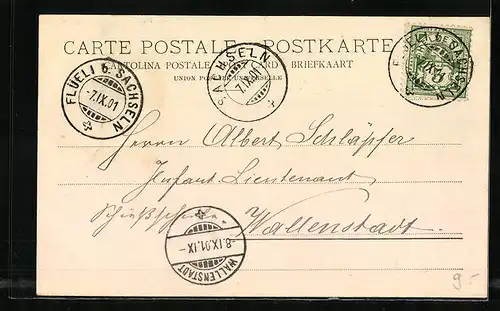 CARTE POSTALE. POSTKARTE.
CARTOLINA POSTALE BRIEFKAART
UNION POSTALE UNIVERSELLE
FLUELI b. SACHSELN
-7.IX.01
SACHSELN
7.IX.
Herrn Albert Schläpfer
Infant. Lieutenant
Wallenstadt.
-8.IX.01.IX-
WALLENSTADT
9.-